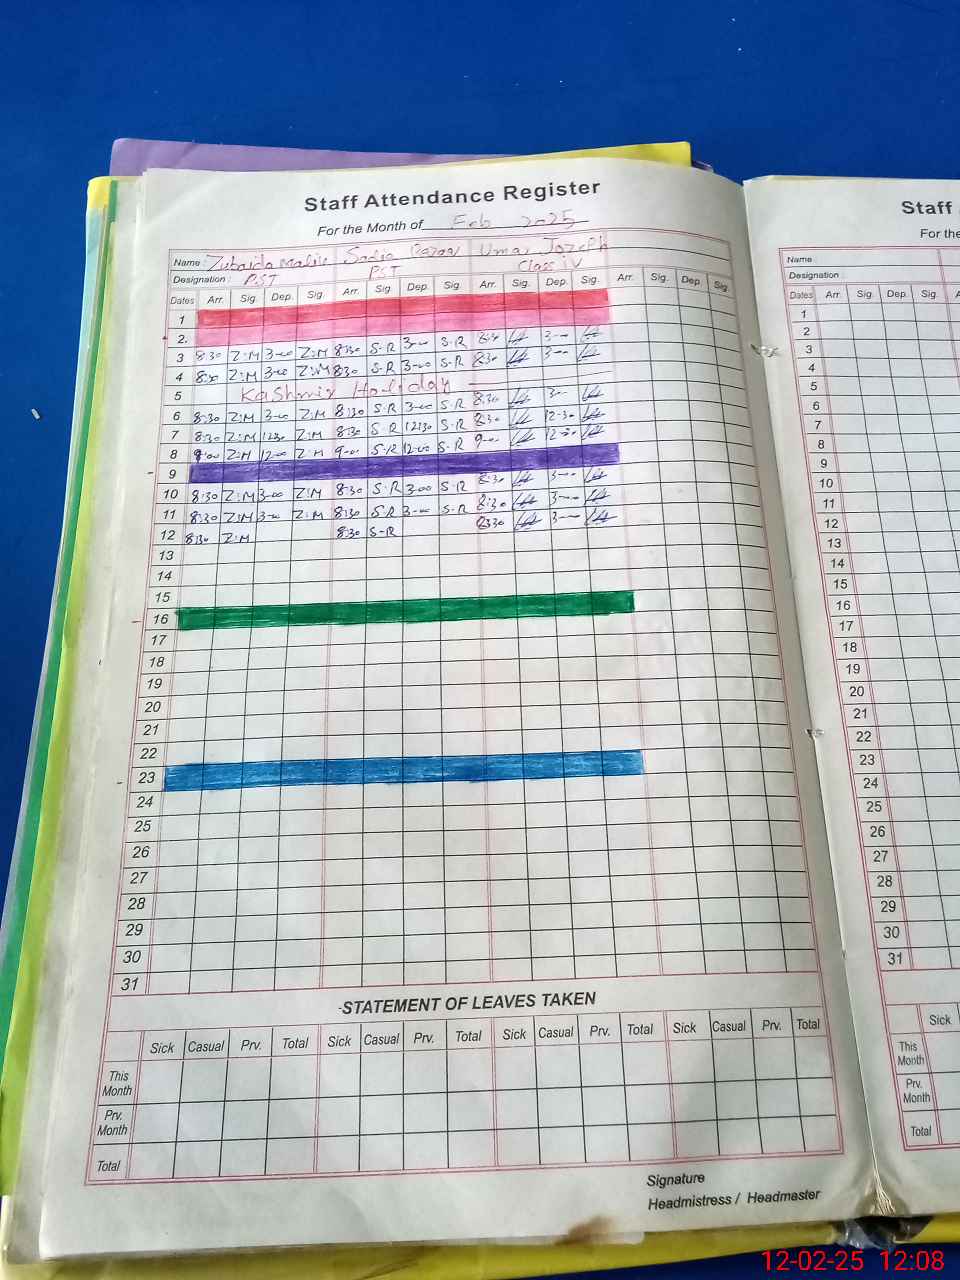 Staff Attendance Register
For the Month of Feb 2025
Name : Zubaida Malik Sadia Razaq Umar Jozeph
Designation : PST PST Class iv
Dates Arr. Sig. Dep. Sig. Arr. Sig Dep. Sig. Arr. Sig. Dep. Sig. Arr. Sig. Dep. Sig.
1
2.
3 8:30 Z:M 3-00 Z:M 8:30 S-R 3-00 S-R 8:30 3-00
4 8:30 Z:M 3-00 Z:M 8:30 S-R 3-00 S-R 8:30 3-00
5 Kashmir Holiday
6 8:30 Z:M 3-00 Z:M 8:30 S-R 3-00 S-R 8:30 3-
7 8:30 Z:M 12:30 Z:M 8:30 S-R 12:30 S-R 8:30 12-30
8 9:00 Z:M 12:00 Z:M 9-00 S-R 12:00 S-R 9-00
9
10 8:30 Z:M 3-00 Z:M 8:30 S-R 3-00 S-R 8:30 3-00
11 8:30 Z:M 3-00 Z:M 8:30 S-R 3-00 S-R 8:30 3-00
12 8:30 Z:M 8:30 S-R 8:30 3-00
13
14
15
16
17
18
19
20
21
22
23
24
25
26
27
28
29
30
31
STATEMENT OF LEAVES TAKEN
Sick Casual Prv. Total Sick Casual Prv. Total Sick Casual Prv. Total Sick Casual Prv. Total
This
Month
Prv.
Month
Total
Signature
Headmistress / Headmaster
Staff
For the
Name
Designation :
Dates Arr. Sig. Dep. Sig.
1
2
3
4
5
6
7
8
9
10
11
12
13
14
15
16
17
18
19
20
21
22
23
24
25
26
27
28
29
30
31
Sick
This
Month
Prv.
Month
Total
12-02-25 12:08